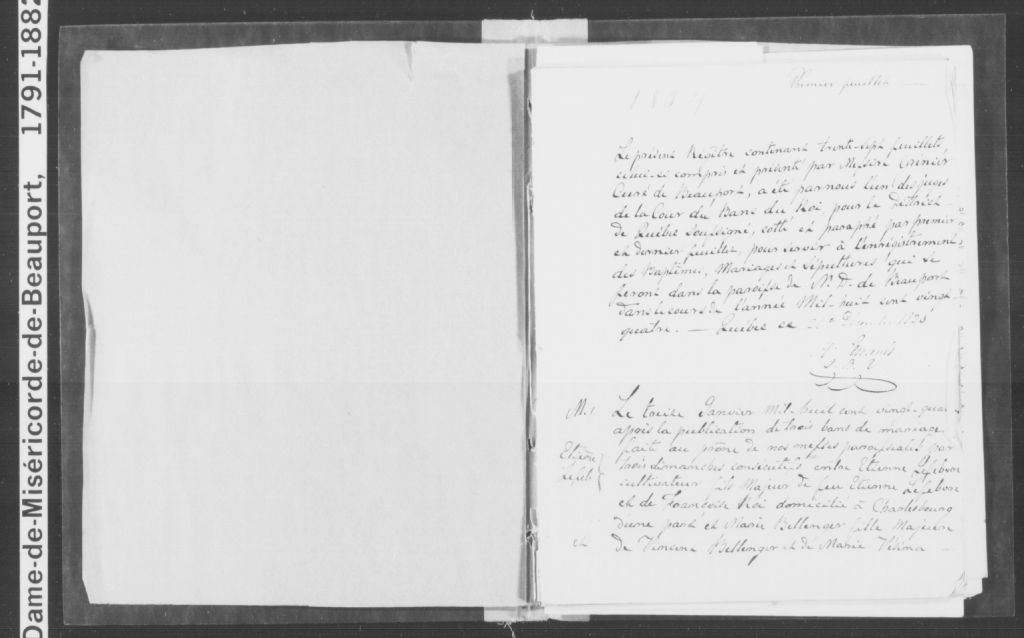 Dame-de-Miséricorde-de-Beauport, 1791-1882
Premier feuillet
1824
Le présent Régître contenant trente-sept feuillets,
celui-ci compris et présenté par Messire
Curé de Beauport, a été par nous l'un des juges
de la Cour du Banc du Roi, pour le District
de Québec Soussigné, cotté et paraphé par premier
et dernier feuillet, pour servir à l'enrégistrement
des Baptêmes, Mariages et Sépultures qui se
feront dans la paroisse de N. D. de Beauport
dans le cours de l'année Mil-huit cent vingt
quatre. — Québec ce
M. 1
Le treize Janvier mil-huit cent vingt-quat
après la publication de trois bans de mariage
faite au prône de nos messes paroissiales par
Etienne
trois dimanches consécutifs entre Etienne Lefebvre
Lefeb
cultivateur fils Majeur de feu Etienne Lefebvre
et de Françoise Roi domicilié à Charlesbourg
d'une part et Marie Bellenger fille Majeure
et
de Vincent Bellenger et de Marie Vésina —